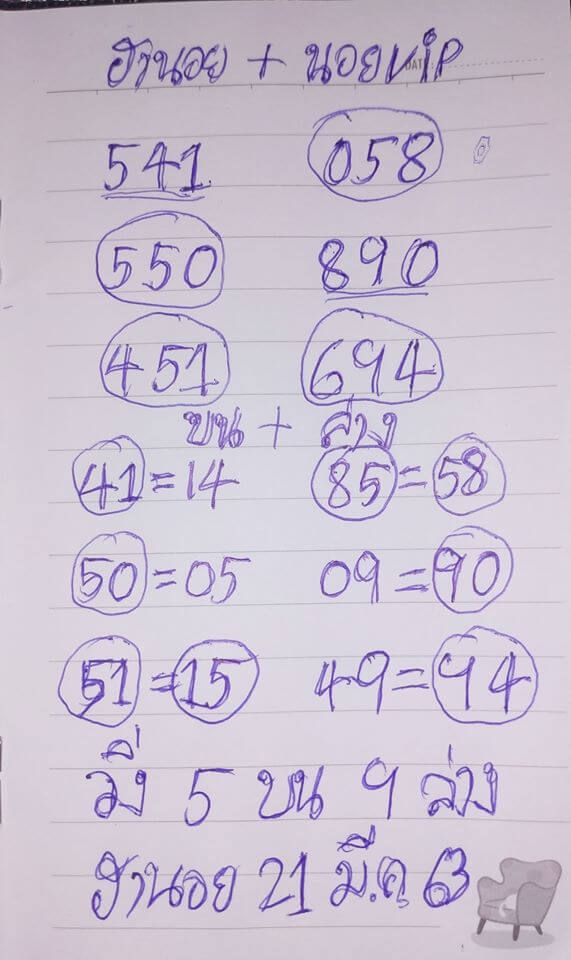 ฮานอย + นอยVIP
DATE
541 058
550 890
451 694
บน + ล่าง
41=14 85=58
50=05 09=90
51=15 49=94
วิ่ง 5 บน 9 ล่าง
ฮานอย 21 มี.ค 63